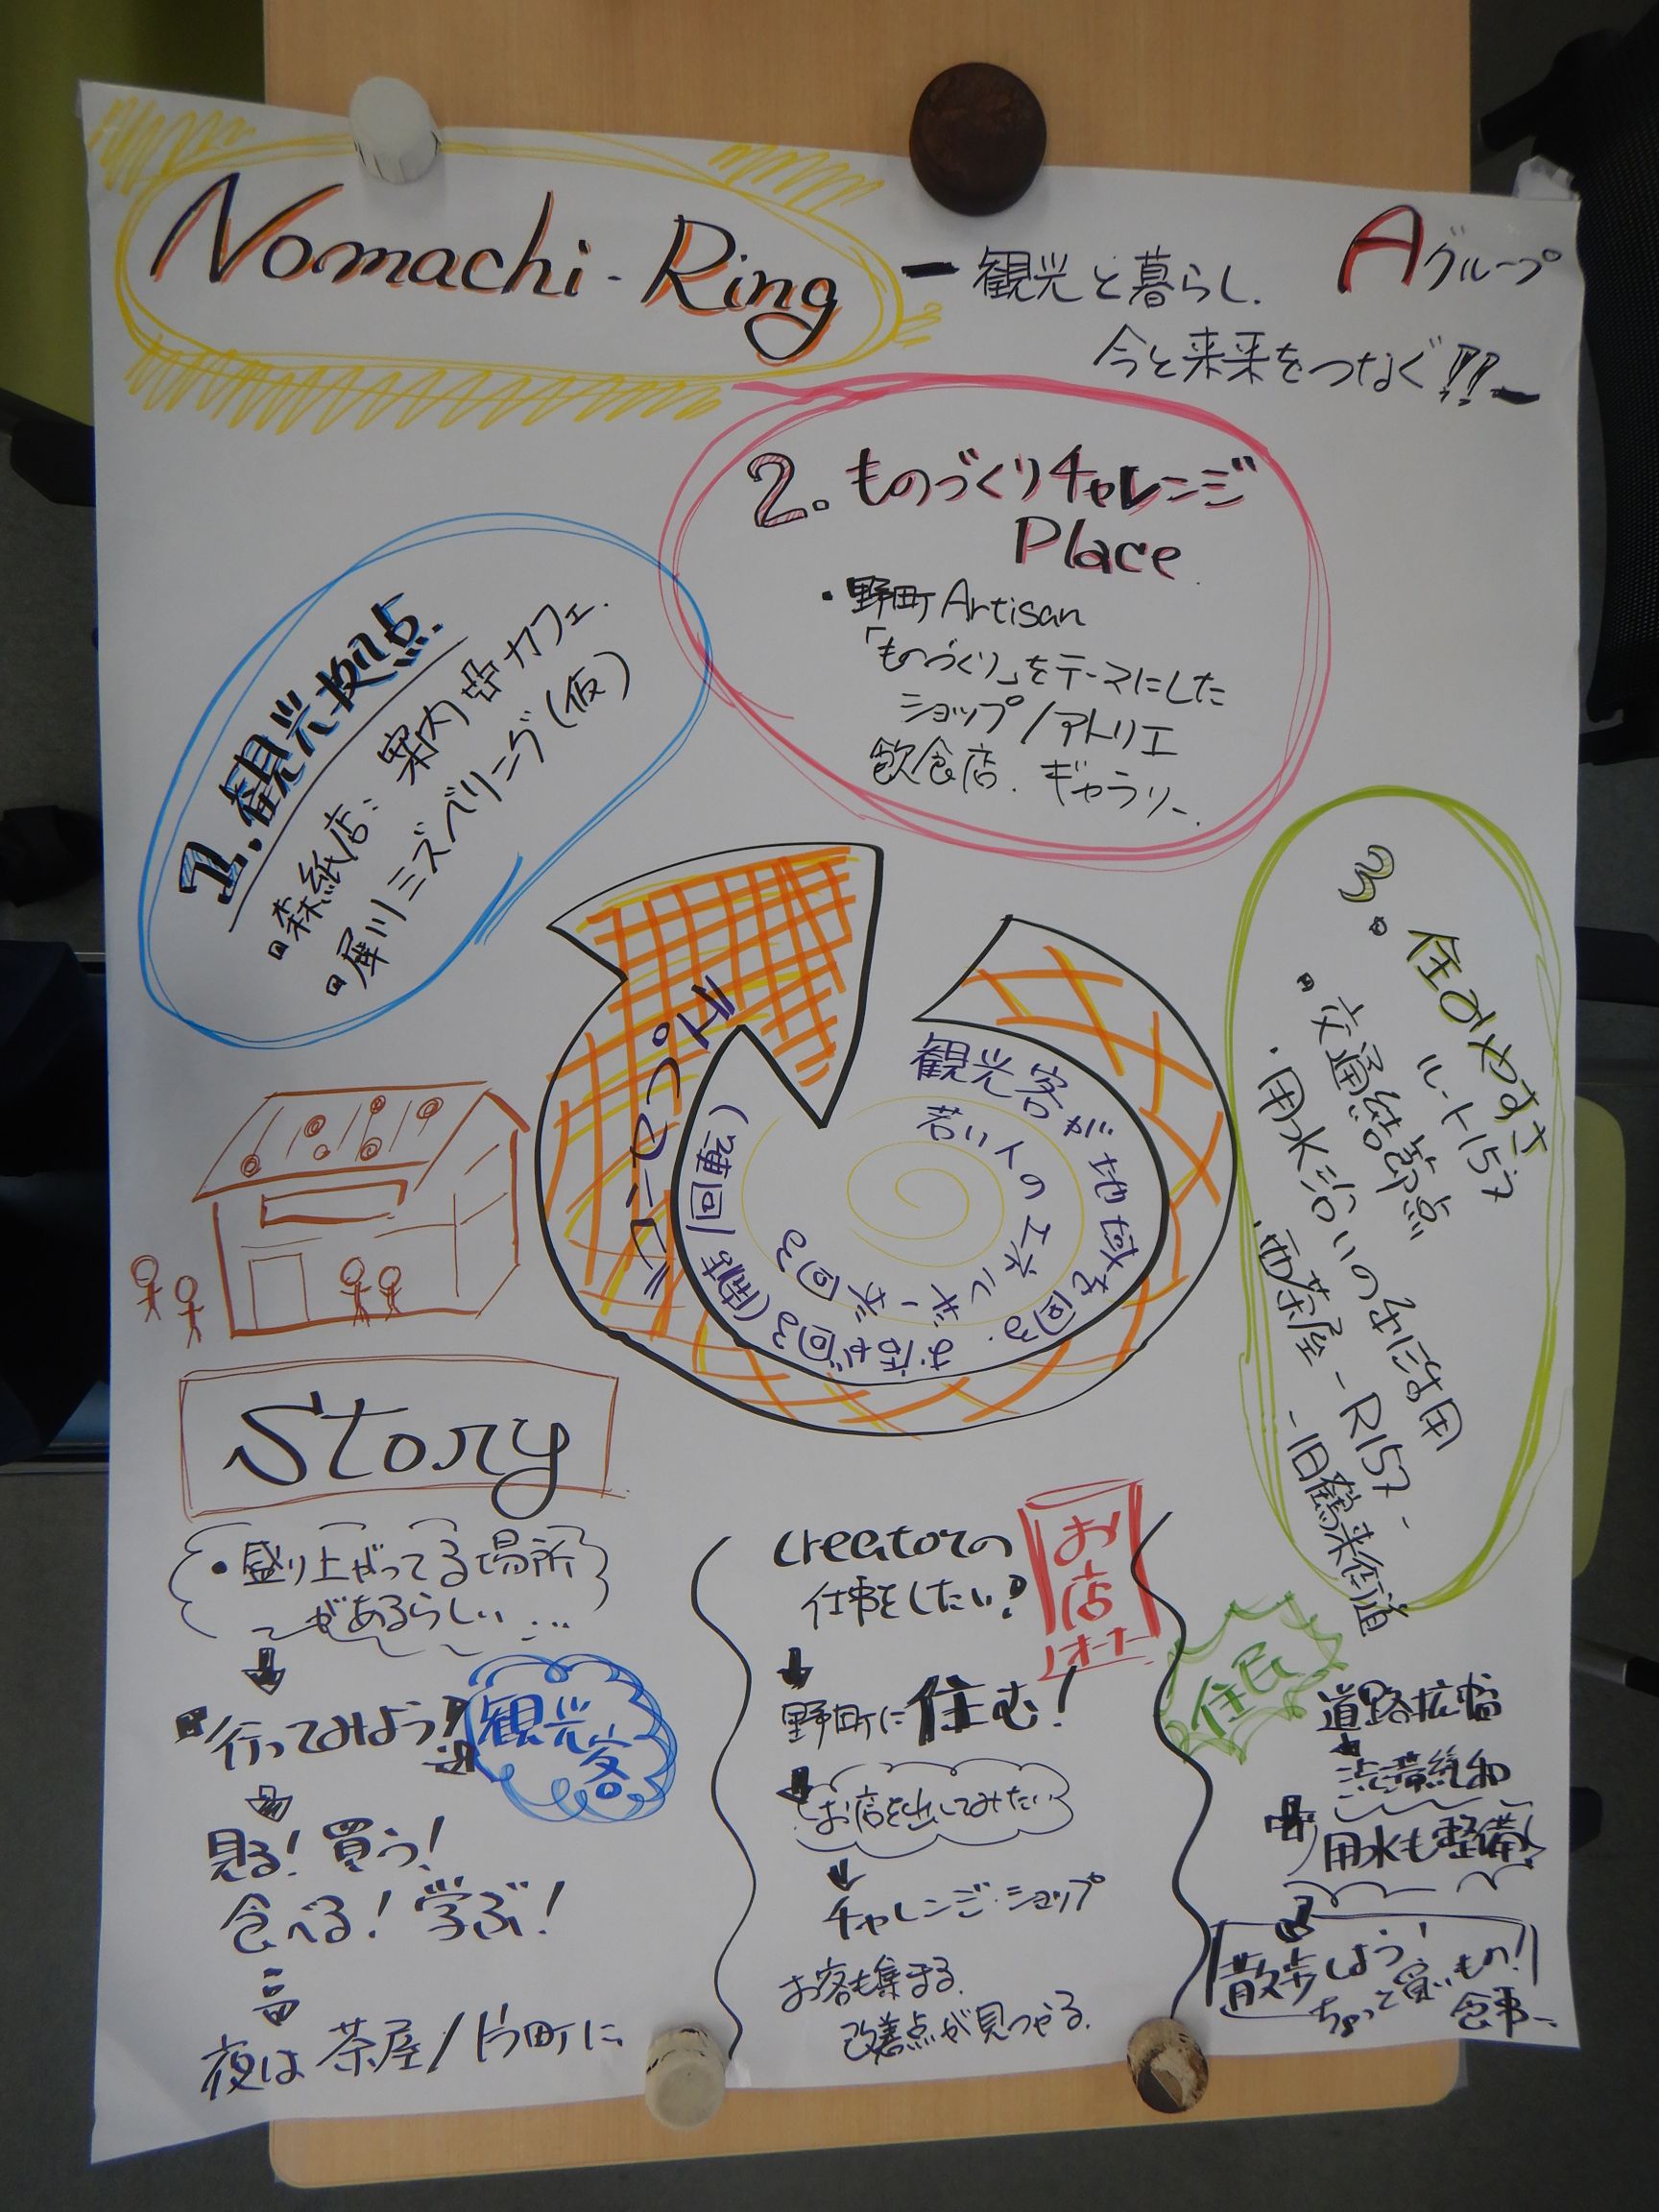 Nomachi-Ring
ー観光と暮らし.
今と未来をつなぐ!!ー
Aグループ
1. 観光拠点
森紙店: 案内 カフェ.
犀川ミズベリング(仮)
2. ものづくりチャレンジ
Place
・野町Artisan
「ものづくり」をテーマにした
ショップ/アトリエ
飲食店. ギャラリー.
3. 住みやすさ
ルート157
・交通結節点
・用水沿いの利活用
・西茶屋-R157-
-旧鶴来街道
コンセプト
観光客が地域を回る.
若い人のエネルギーが回る
お店が回る(開店/
Story
・盛り上がってる場所
があるらしい...
"行ってみよう!"
観光客
見る!買う!
食べる!学ぶ!
夜は 茶屋/片町に
creatorの
仕事をしたい?
お店
オーナー
野町に住む!
お店を出してみたい
チャレンジ・ショップ
お客も集まる.
改善点が見つかる.
住民
道路拡幅
渋滞緩和
用水も整備
散歩しよう!
ちょっと買いもの!
食事ー